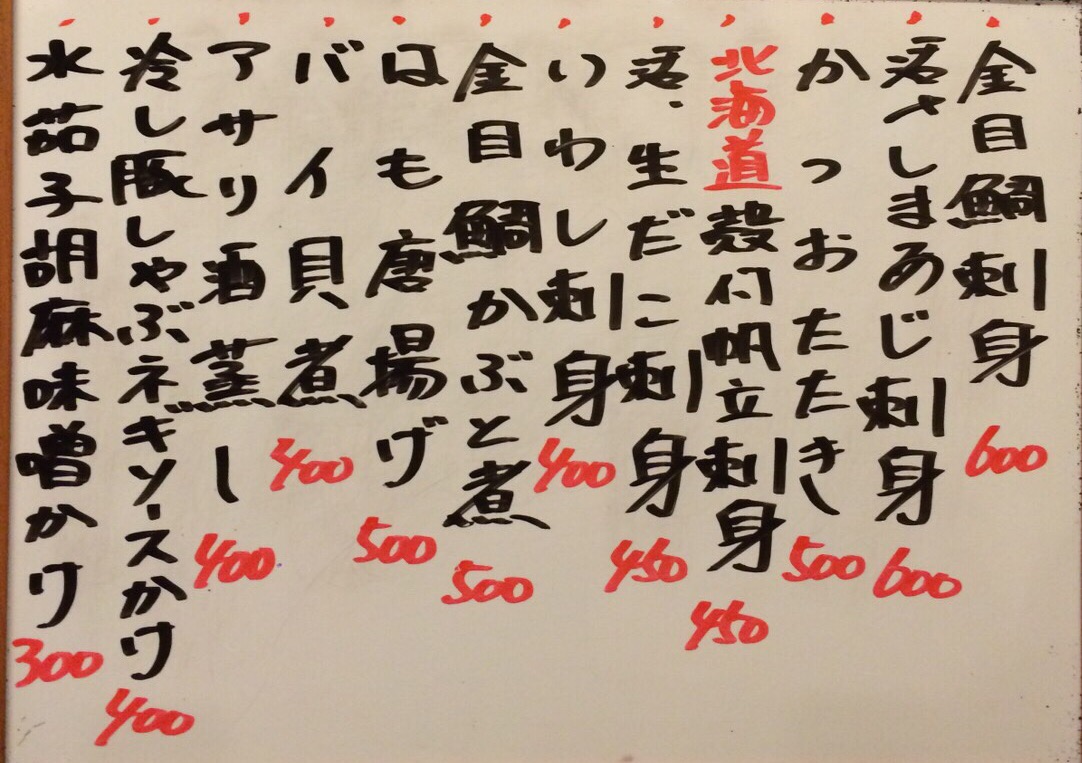 金目鯛刺身 600
活さしまあじ刺身 600
かつおたたき 500
北海道殻付帆立刺身 450
活、生だこ刺身 450
いわし刺身 400
金目鯛かぶと煮 500
はも唐揚げ 500
バイ貝煮 400
アサリ酒蒸し 400
冷し豚しゃぶネキソースかけ 400
水茄子胡麻味噌かけ 300